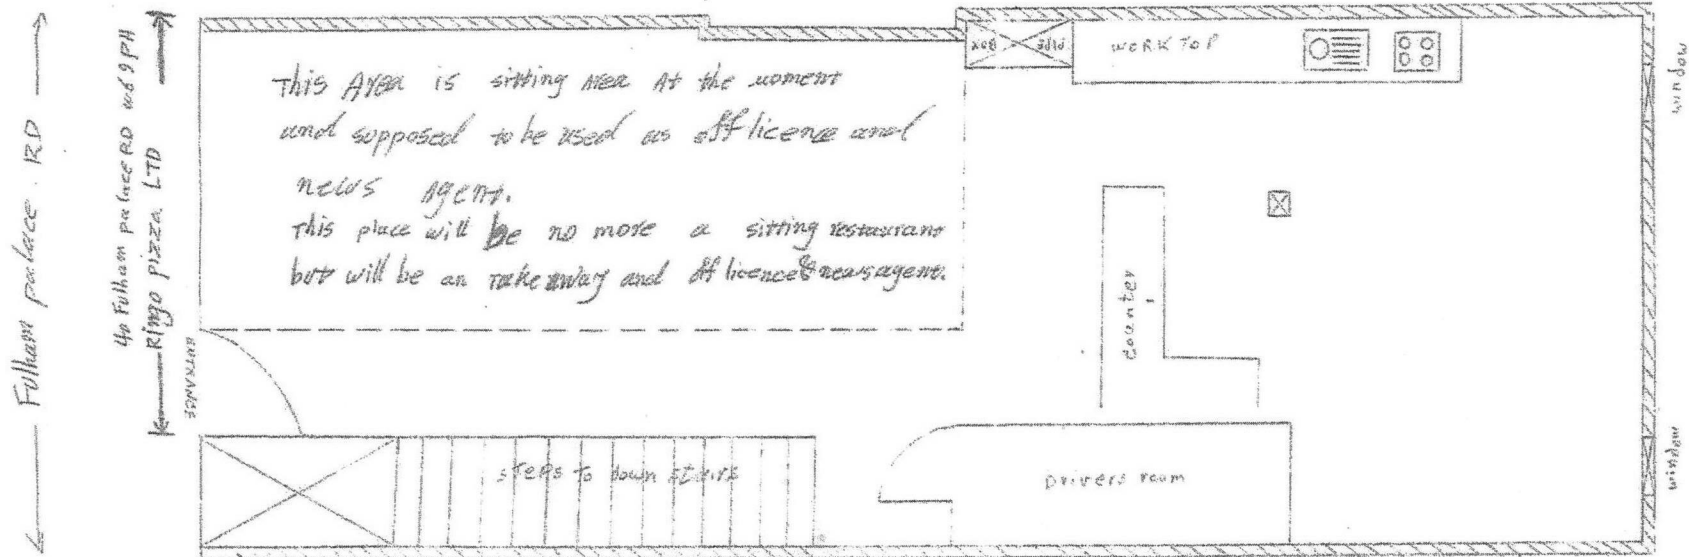 Fulham palace. RD
Fulham palace RD w6 9PH
Ringo pizza LTD
ENTRANCE
This Area is sitting Area At the moment
and supposed to be used as off licence and
news Agent.
This place will be no more a sitting restaurant
but will be an Take away and off licence & newsagent.
PIPE BOX
WORK TOP
counter
steps to down stairs
Drivers room
window
window